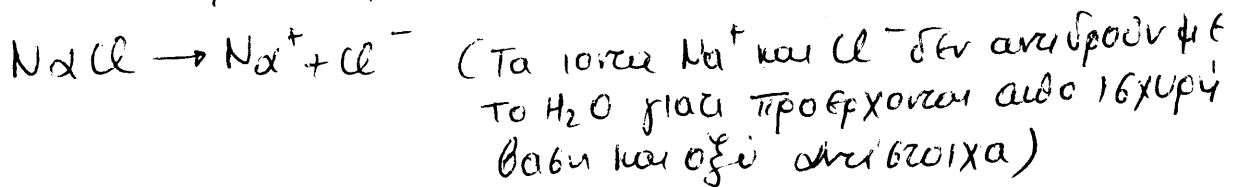 NaCl → Na⁺ + Cl⁻ (Τα ιοντα Na⁺ και Cl⁻ δεν αντιδρούν με
το H₂O γιατι προερχονται απο ισχυρή
βαση και οξύ αντίστοιχα)